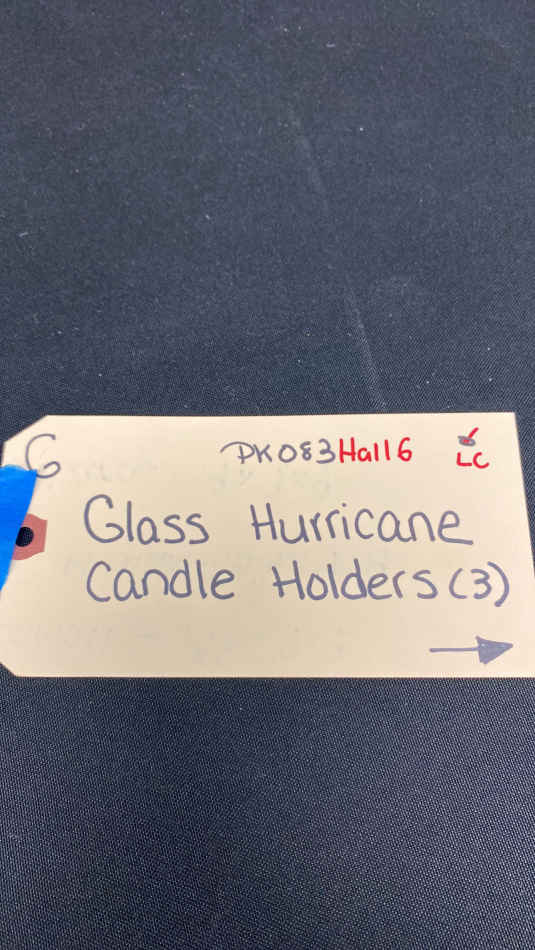 G PK083Hall6
LC
Glass Hurricane
Candle Holders (3)